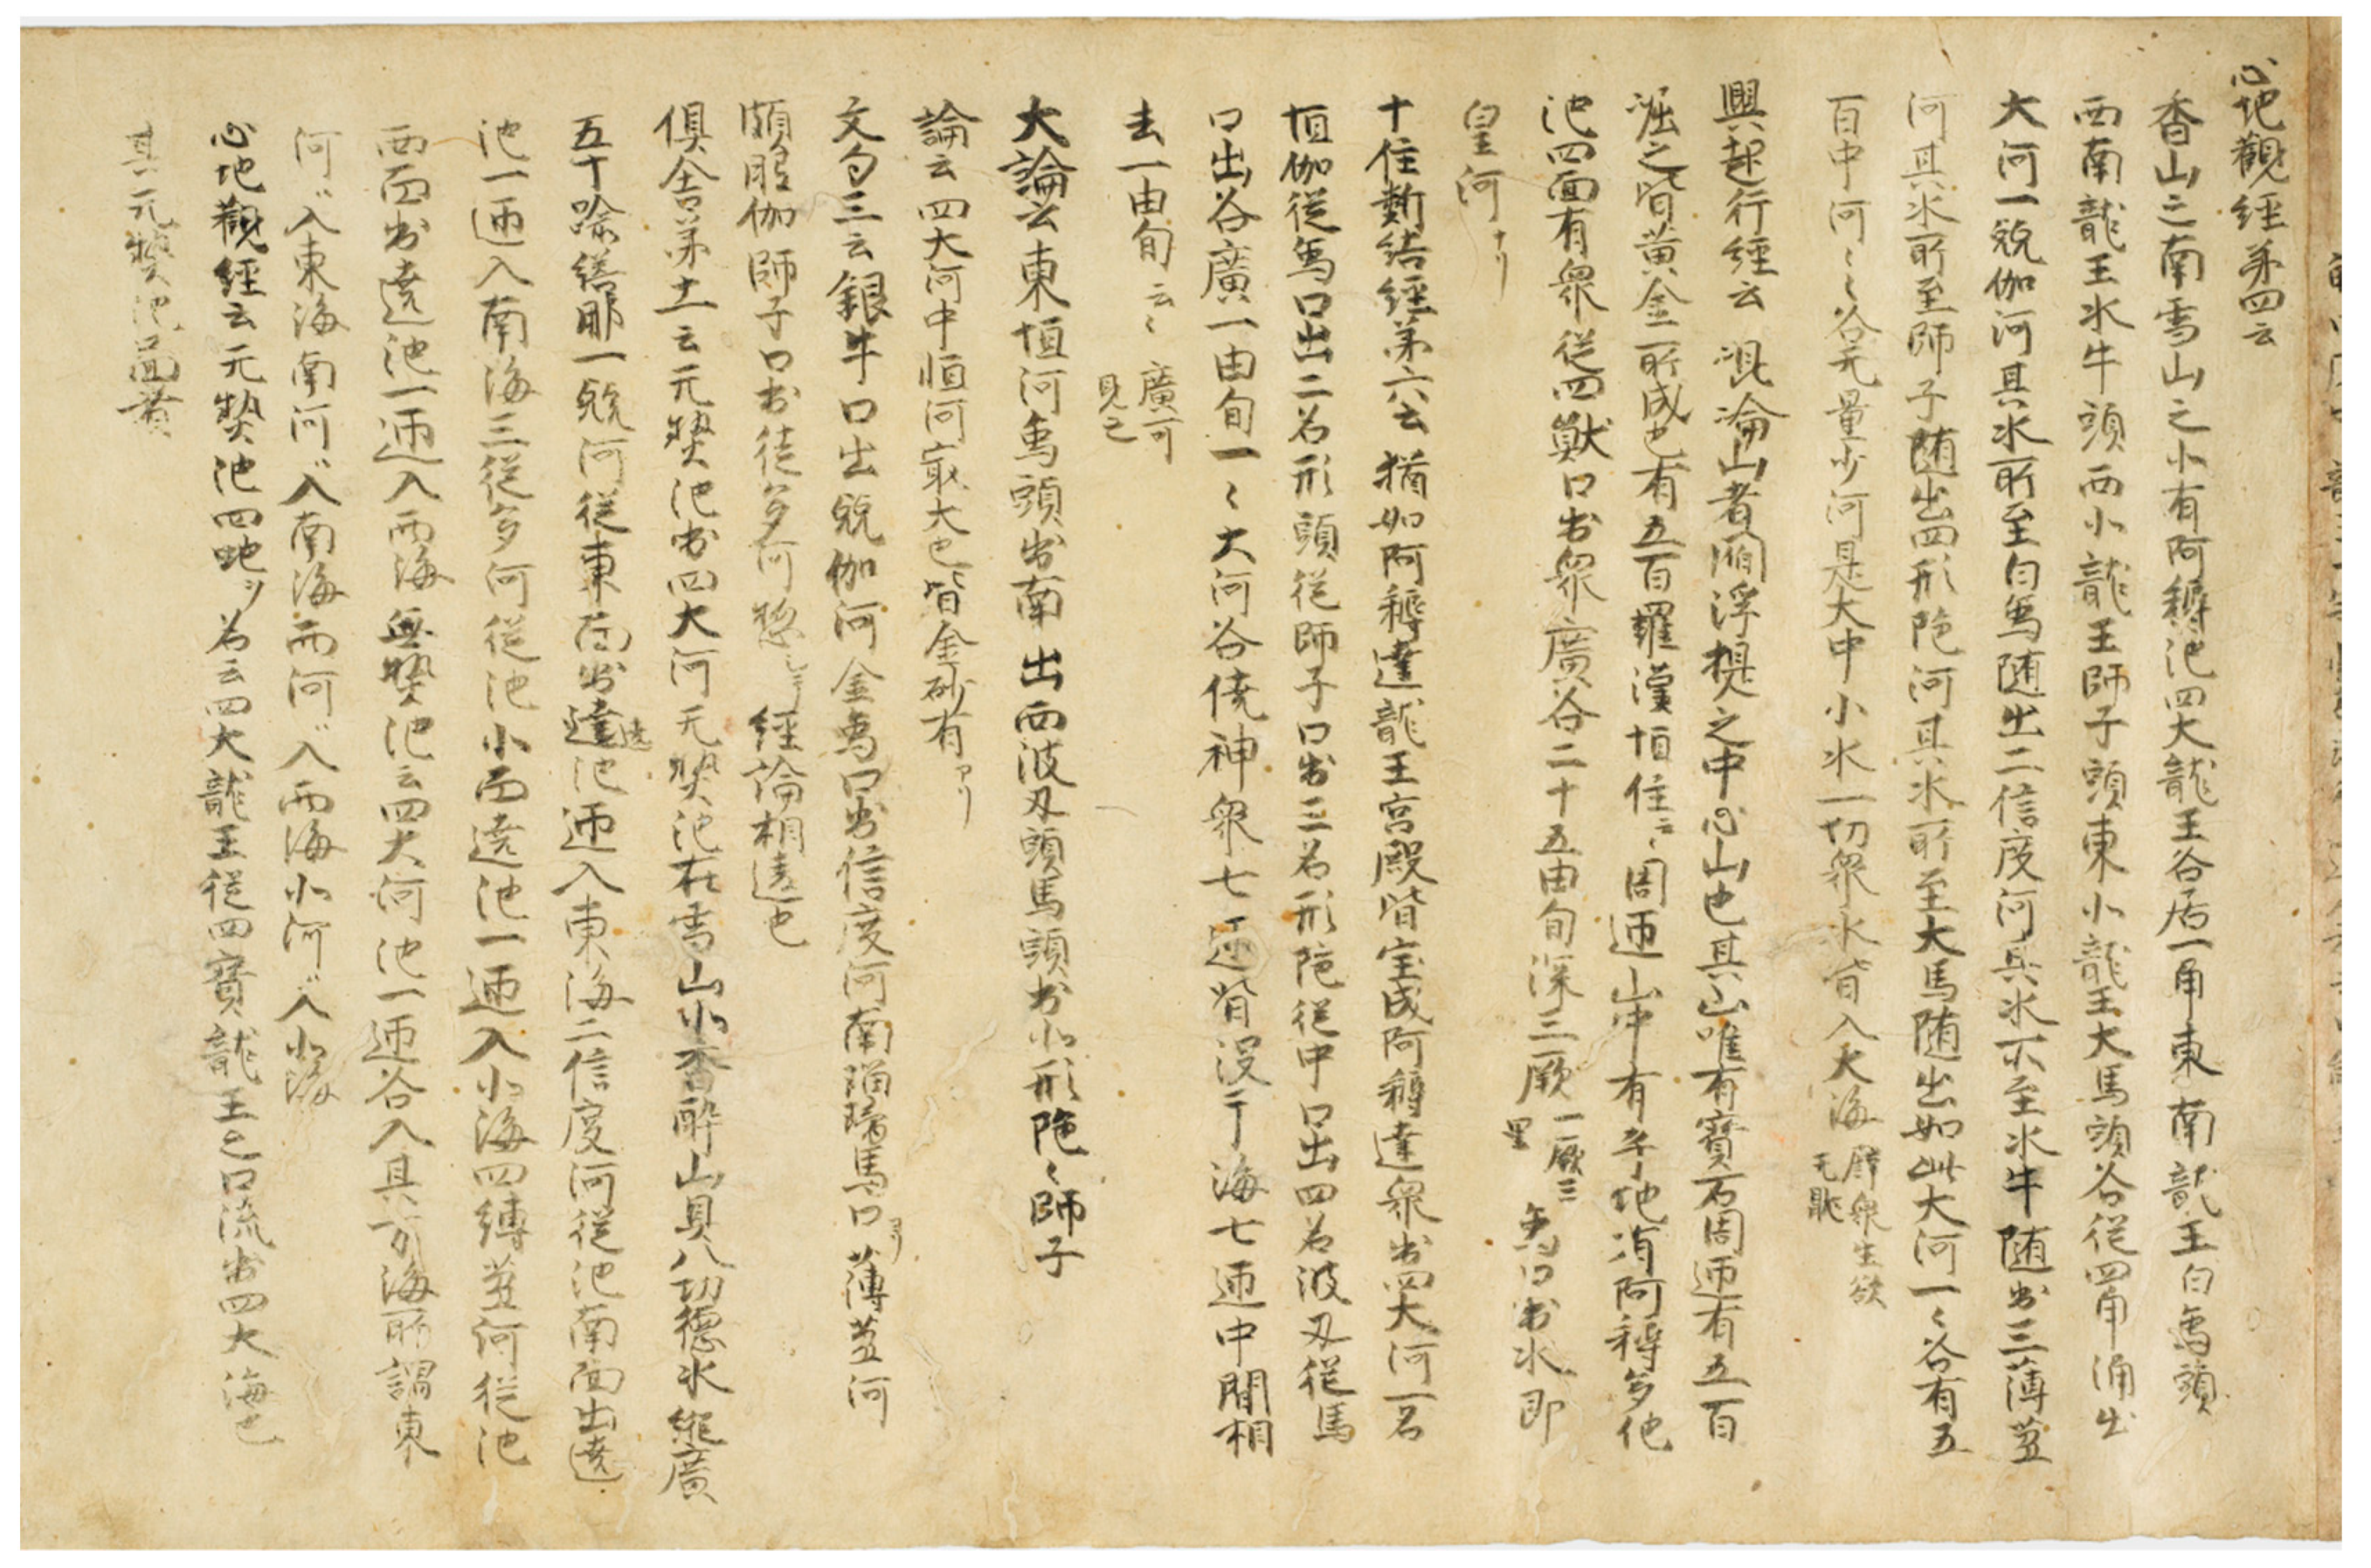 心地觀經第四云
香山之南雪山之北有阿耨池四大龍王各居一角東南龍王白象頭
西南龍王水牛頭西北龍王師子頭東北龍王大馬頭各從四角涌出
大河一兢伽河其水所至白象随出二信度河其水所至水牛随出三薄芻
河其水所至師子随出四形陁河其水所至大馬随出如此大河一〻各有五
百中河〻〻各无量少河是大中小水一切衆水皆入大海 衆生欲
无
興起行經云 崑崙山者閻浮提之中心山也其山唯有寶石周迊有五百
崛之皆黄金所成也有五百羅漢恒住 周迊山中有 地 阿耨多他
池四面有衆從四獣口出衆廣谷二十五由旬深三厥 一厥三
里 象口出水即
皇河ナリ
十住断結經第六云猶如阿耨達龍王宮殿皆宝成阿耨達衆出四大河一名
恒伽從象口出二名形頭從師子口出三名形陁從中口出四名波叉從馬
口出谷廣一由旬一〻大河谷傍神衆七迊皆没于海七迊中間相
去一由旬云〻 廣可
見之
大論云東恒河象頭出南 出西波叉頭馬頭出北形陁〻師子
論云四大河中恒河㝡大也皆金砂有アリ
文句三云銀牛口出兢伽河金象口出信度河南 馬口ヨリ薄芻河
頗胝伽師子口出徒多河 經論相違也
俱舎第十一云元熱池出四大河无熱池在雪山北香酔山具八功德水縦廣
五十踰繕那一兢河從東面出遶池迊入東海二信度河從池南面出遶
池一迊入南海三從多河從池北面遶池一迊入北海四縛芻河從池
西面出遶池一迊入西海無熱池云四大河池一迊谷入其方海所謂東
河〻入東海南河〻入南海西河〻入西海北河〻入北海
心地觀經云元熱池四地ヲ 名云四大龍王從四寳龍王之口流出四大海也
其元熱池面者